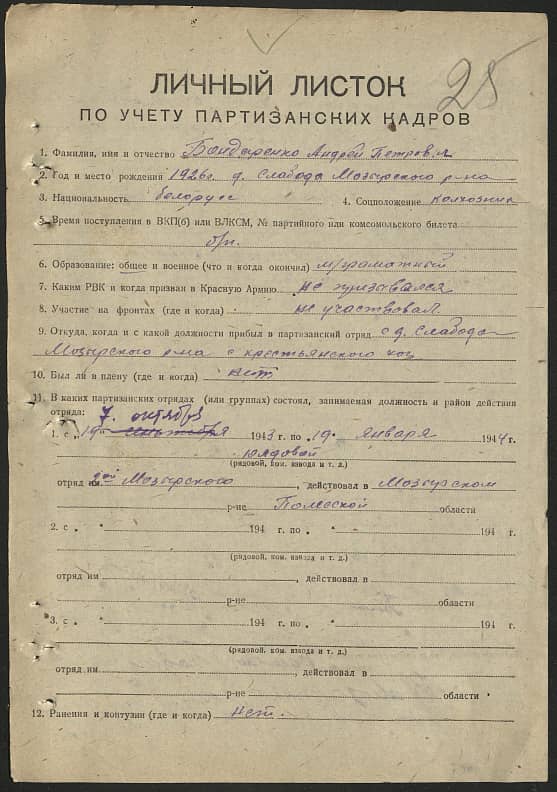 25
ЛИЧНЫЙ ЛИСТОК
ПО УЧЕТУ ПАРТИЗАНСКИХ КАДРОВ
1. Фамилия, имя и отчество Бондаренко Андрей Петрович
2. Год и место рождения 1926г. д. Слабода Мозырского р-на
3. Национальность белорусс 4. Соцположение колхозник
5. Время поступления в ВКП(б) или ВЛКСМ, № партийного или комсомольского билета
б/п.
6. Образование: общее и военное (что и когда окончил) м/грамотный
7. Каким РВК и когда призван в Красную Армию не призывался
8. Участие на фронтах (где и когда) не участвовал
9. Откуда, когда и с какой должности прибыл в партизанский отряд с д. Слабода
Мозырского р-на с крестьянского хоз
10. Был ли в плену (где и когда) нет
11. В каких партизанских отрядах (или группах) состоял, занимаемая должность и район действия
отряда: 7. октября
1. с „19“ сентября 1943 г. по „19“ января 1944 г.
рядовой
(рядовой, ком. взвода и т. д.)
отряд им. Мозырского, действовал в Мозырском
р-не Полесской области
2. с „ “ 194 г. по „ “ 194 г.
(рядовой, ком. взвода и т. д.)
отряд им , действовал в
р-не области
3. с „ “ 194 г. по „ “ 194 г.
(рядовой, ком. взвода и т. д.)
отряд им , действовал в
р-не области
12. Ранения и контузии (где и когда) нет.